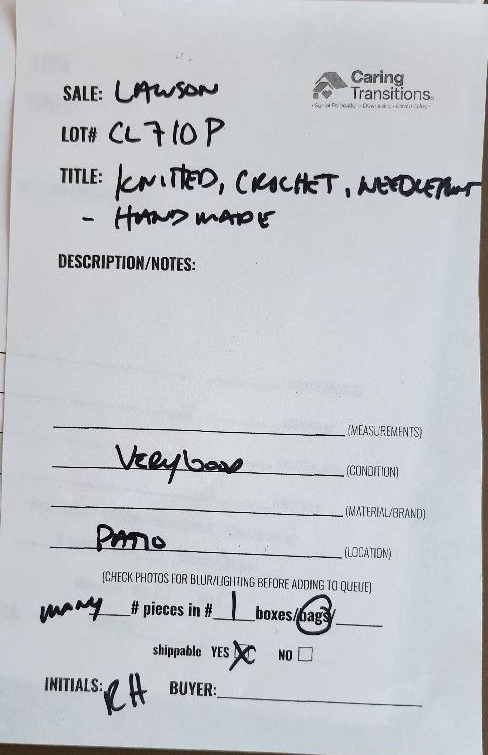 Caring
Transitions
SALE: LAWSON
LOT# CL710P
TITLE: KNITTED, CROCHET, NEEDLEPOINT
- HANDMADE
DESCRIPTION/NOTES:
(MEASUREMENTS)
Very Good (CONDITION)
(MATERIAL/BRAND)
PATIO (LOCATION)
(CHECK PHOTOS FOR BLUR/LIGHTING BEFORE ADDING TO QUEUE)
many # pieces in # 1 boxes/bags/
shippable YES X NO ☐
INITIALS: RH BUYER: